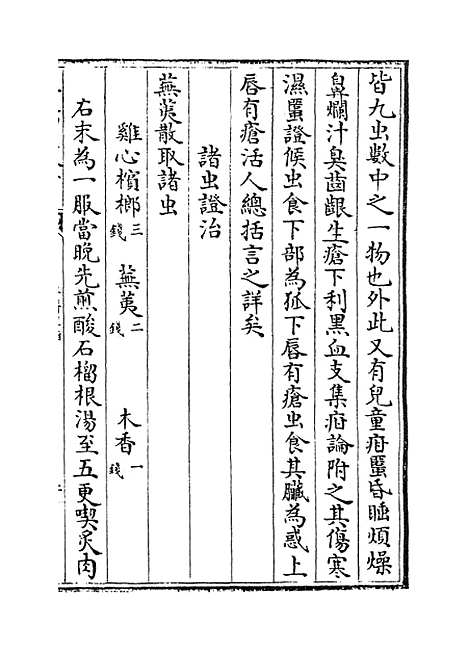 皆九虫數中之一物也外此又有兒童疳䘌昏睡煩燥
鼻爛汁臭齒齦生瘡下利黑血支集疳論附之其傷寒
濕䘌證候虫食下部為狐下唇有瘡虫食其臟為惑上
唇有瘡活人總括言之詳矣
諸虫證治
蕪荑散取諸虫
雞心檳榔三錢 蕪荑二錢 木香一錢
右末為一服當晚先煎酸石榴根湯至五更喫炙肉